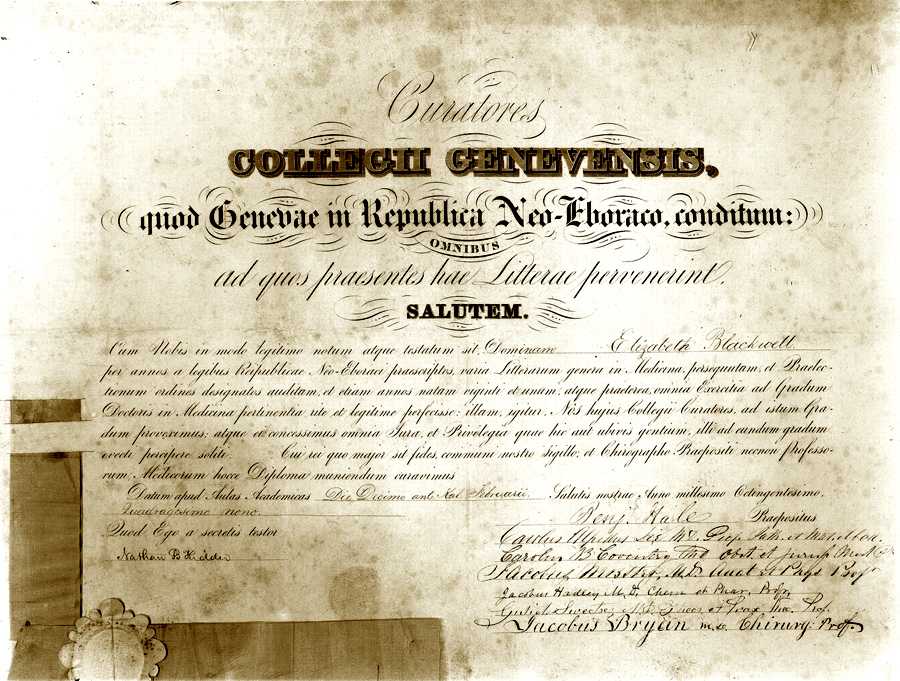 Curatores
COLLEGII GENEVENSIS,
quod Genevae in Republica Neo-Eboraco, conditum:
OMNIBUS
ad quos praesentes hae Litterae pervenerint,
SALUTEM.
Cum Nobis in modo legitimo notum atque testatum sit, Dominam Elizabeth Blackwell
per annos a legibus Reipublicae Neo-Eboraci praescriptos, varia Litterarum genera in Medicina, persequutam, et Praelec-
tionum ordines designatos auditam, et etiam annos natam viginti et unum; atque praeterea, omnia Exercitia ad Gradum
Doctoris in Medicina pertinentia rite et legitimo perfecisse: illam, igitur, Nos hujus Collegii Curatores, ad istum Gra-
dum proveximus; atque ei concessimus omnia Jura, et Privilegia quae hic aut ubivis gentium, illo ad eundum gradum
evecti percipere soliti. Cui rei quo major sit fides, communi nostro sigillo, et Chirographo Praepositi necnon Professo-
rum, Medicorum hocce Diploma muniendum curavimus
Datum apud Aulas Academicas Die Decimo ante Kal Februarii. Salutis nostrae Anno millesimo Octengentesimo,
Quadragesimo nono.
Benj. Hale Praepositus
Quod Ego a secretis testor
Nathan B Kidder
Carolus Alphus Lee M.D.
Carolus B Coventry Obst. et Jurisp. Med
Jacobus Webster, M.D. Anat et Phys Prof
Jacobus Hadley M.D. Chem et Phar. Prof
et Prax Prof.
Jacobus Bryan M.D. Chirurg: Prof.